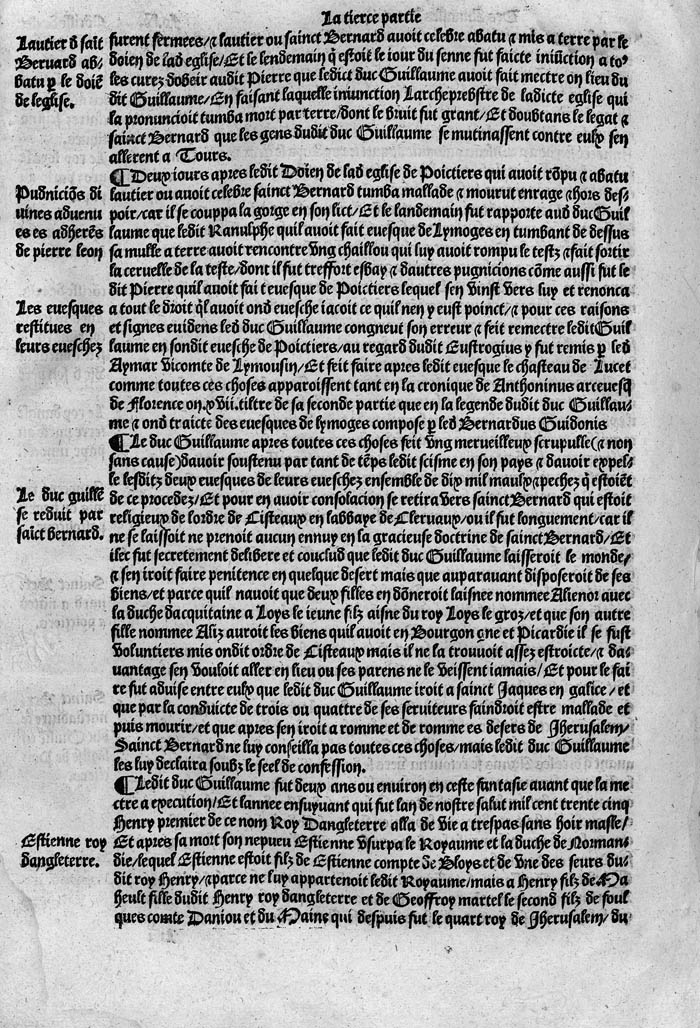 La tierce partie
Lautier d̄ sait
Bernard ab-
batu ꝑ le doiē
de leglise.
furent fermees/⁊ lautier ou sainct Bernard avoit celebre abatu ⁊ mis a terre par le
doien de lad eglise/Et le lendemain q̄ estoit le iour du senne fut faicte iniūction a to⁹
les curez dobeir audit Pierre que ledict duc Guillaume avoit fait mectre on lieu du
dit Guillaume/En faisant laquelle iniunction Larcheprebstre de ladicte eglise qui
la pronuncioit tumba mort par terre/dont le bruit fut grant/Et doubtans le legat ⁊
sainct Bernard que les gens dudit duc Guillaume se mutinassent contre eulx sen
allerent a Tours.
Pudniciōs di
uines advenu
es es adherēs
de pierre leon
¶Deux iours apres ledit Doien de lad eglise de Poictiers qui avoit rōpu ⁊ abatu
lautier ou avoit celebre sainct Bernard tumba mallade ⁊ mourut enrage ⁊ hors des-
poir/car il se couppa la gorge en son lict/Et le landemain fut rapporte aud duc Guil
laume que ledit Ranulphe quil avoit fait evesque de Lymoges en tumbant de dessus
sa mulle a terre avoit rencontre vng chaillou qui luy avoit rompu le testz ⁊ fait sortir
la cervelle de la teste/dont il fut treffort esbay ⁊ dautres pugnicions cōme aussi fut le
dit Pierre quil avoit fait evesque de Poictiers lequel sen vinst vers luy et renonca
Les evesques
restitues en
leurs eveschez
a tout le droit q̄l avoit ond evesche iacoit ce quil nen y eust poinct/⁊ pour ces raisons
et signes evidens led duc Guillaume congneut son erreur ⁊ feit remectre ledit Guil
laume en sondit evesche de Poictiers/au regard dudit Eustrogius y fut remis ꝑ led
Aymar vicomte de Lymousin/Et feit faire apres ledit evesque le chasteau de Lucet
comme toutes ces choses apparoissent tant en la cronique de Anthoninus arcevesq̄
de Florence on.xvii.tiltre de sa seconde partie que en la legende dudit duc Guillau-
me ⁊ ond traicte des evesques de lymoges compose ꝑ led Bernardus Guidonis
¶Le duc Guillaume apres toutes ces choses feit vng merveilleux scrupulle(⁊ non
sans cause)davoir soustenu par tant de tēps ledit scisme en son pays ⁊ davoir expel-
le lesditz deux evesques de leurs eveschez ensemble de dix mil maulx ⁊ pechez q̄ estoiēt
Le duc guillē
se reduit par
saict bernard.
de ce procedez/Et pour en avoir consolacion se retira vers sainct Bernard qui estoit
religieux de lordre de Cisteaux en labbaye de Clervaux/ou il fut longuement/car il
ne se laissoit ne prenoit aucun ennuy en la gracieuse doctrine de sainct Bernard/Et
ilec fut secretement delibere et couclud que ledit duc Guillaume laisseroit le monde/
⁊ sen iroit faire penitence en quelque desert mais que auparavant disposeroit de ses
biens/et parce quil navoit que deux filles en dōneroit laisnee nommee Alienor avec
la duche dacquitaine a Loys le ieune filz aisne du roy Loys le groz/et que son autre
fille nommee Aliz auroit les biens quil avoit en Bourgongne et Picardie il se fust
voluntiers mis ondit ordre de Cisteaux mais il ne la trouvoit assez estroicte/⁊ da-
vantage sen vouloit aller en lieu ou ses parens ne le veissent iamais/Et pour le fai
re fut advise entre eulx que ledit duc Guillaume iroit a sainct Jaques en galice/et
que par la conduicte de trois ou quattre de ses serviteurs faindroit estre mallade et
puis mourir/et que apres sen iroit a romme et de romme es desers de Jherusalem/
Sainct Bernard ne luy conseilla pas toutes ces choses/mais ledit duc Guillaume
les luy declaira soubz le seel de confession.
¶Ledit duc Guillaume fut deux ans ou environ en ceste fantasie avant que la me
ctre a execution/Et lannee ensuyvant qui fut lan de nostre salut mil cent trente cinq
Henry premier de ce nom Roy Dangleterre alla de vie a trespas sans hoir masle/
Estienne roy
dangleterre.
Et apres sa mort son nepveu Estienne vsurpa le Royaume et la duche de Norman-
die/lequel Estienne estoit filz de Estienne compte de Bloys et de vne des seurs du-
dit roy Henry/⁊ parce ne luy appartenoit ledit Royaume/mais a Henry filz de Ma
heult fille dudit Henry roy dangleterre et de Geoffroy martel le second filz de foul
ques comte Daniou et du Maine qui despuis fut le quart roy de Jherusalem/du